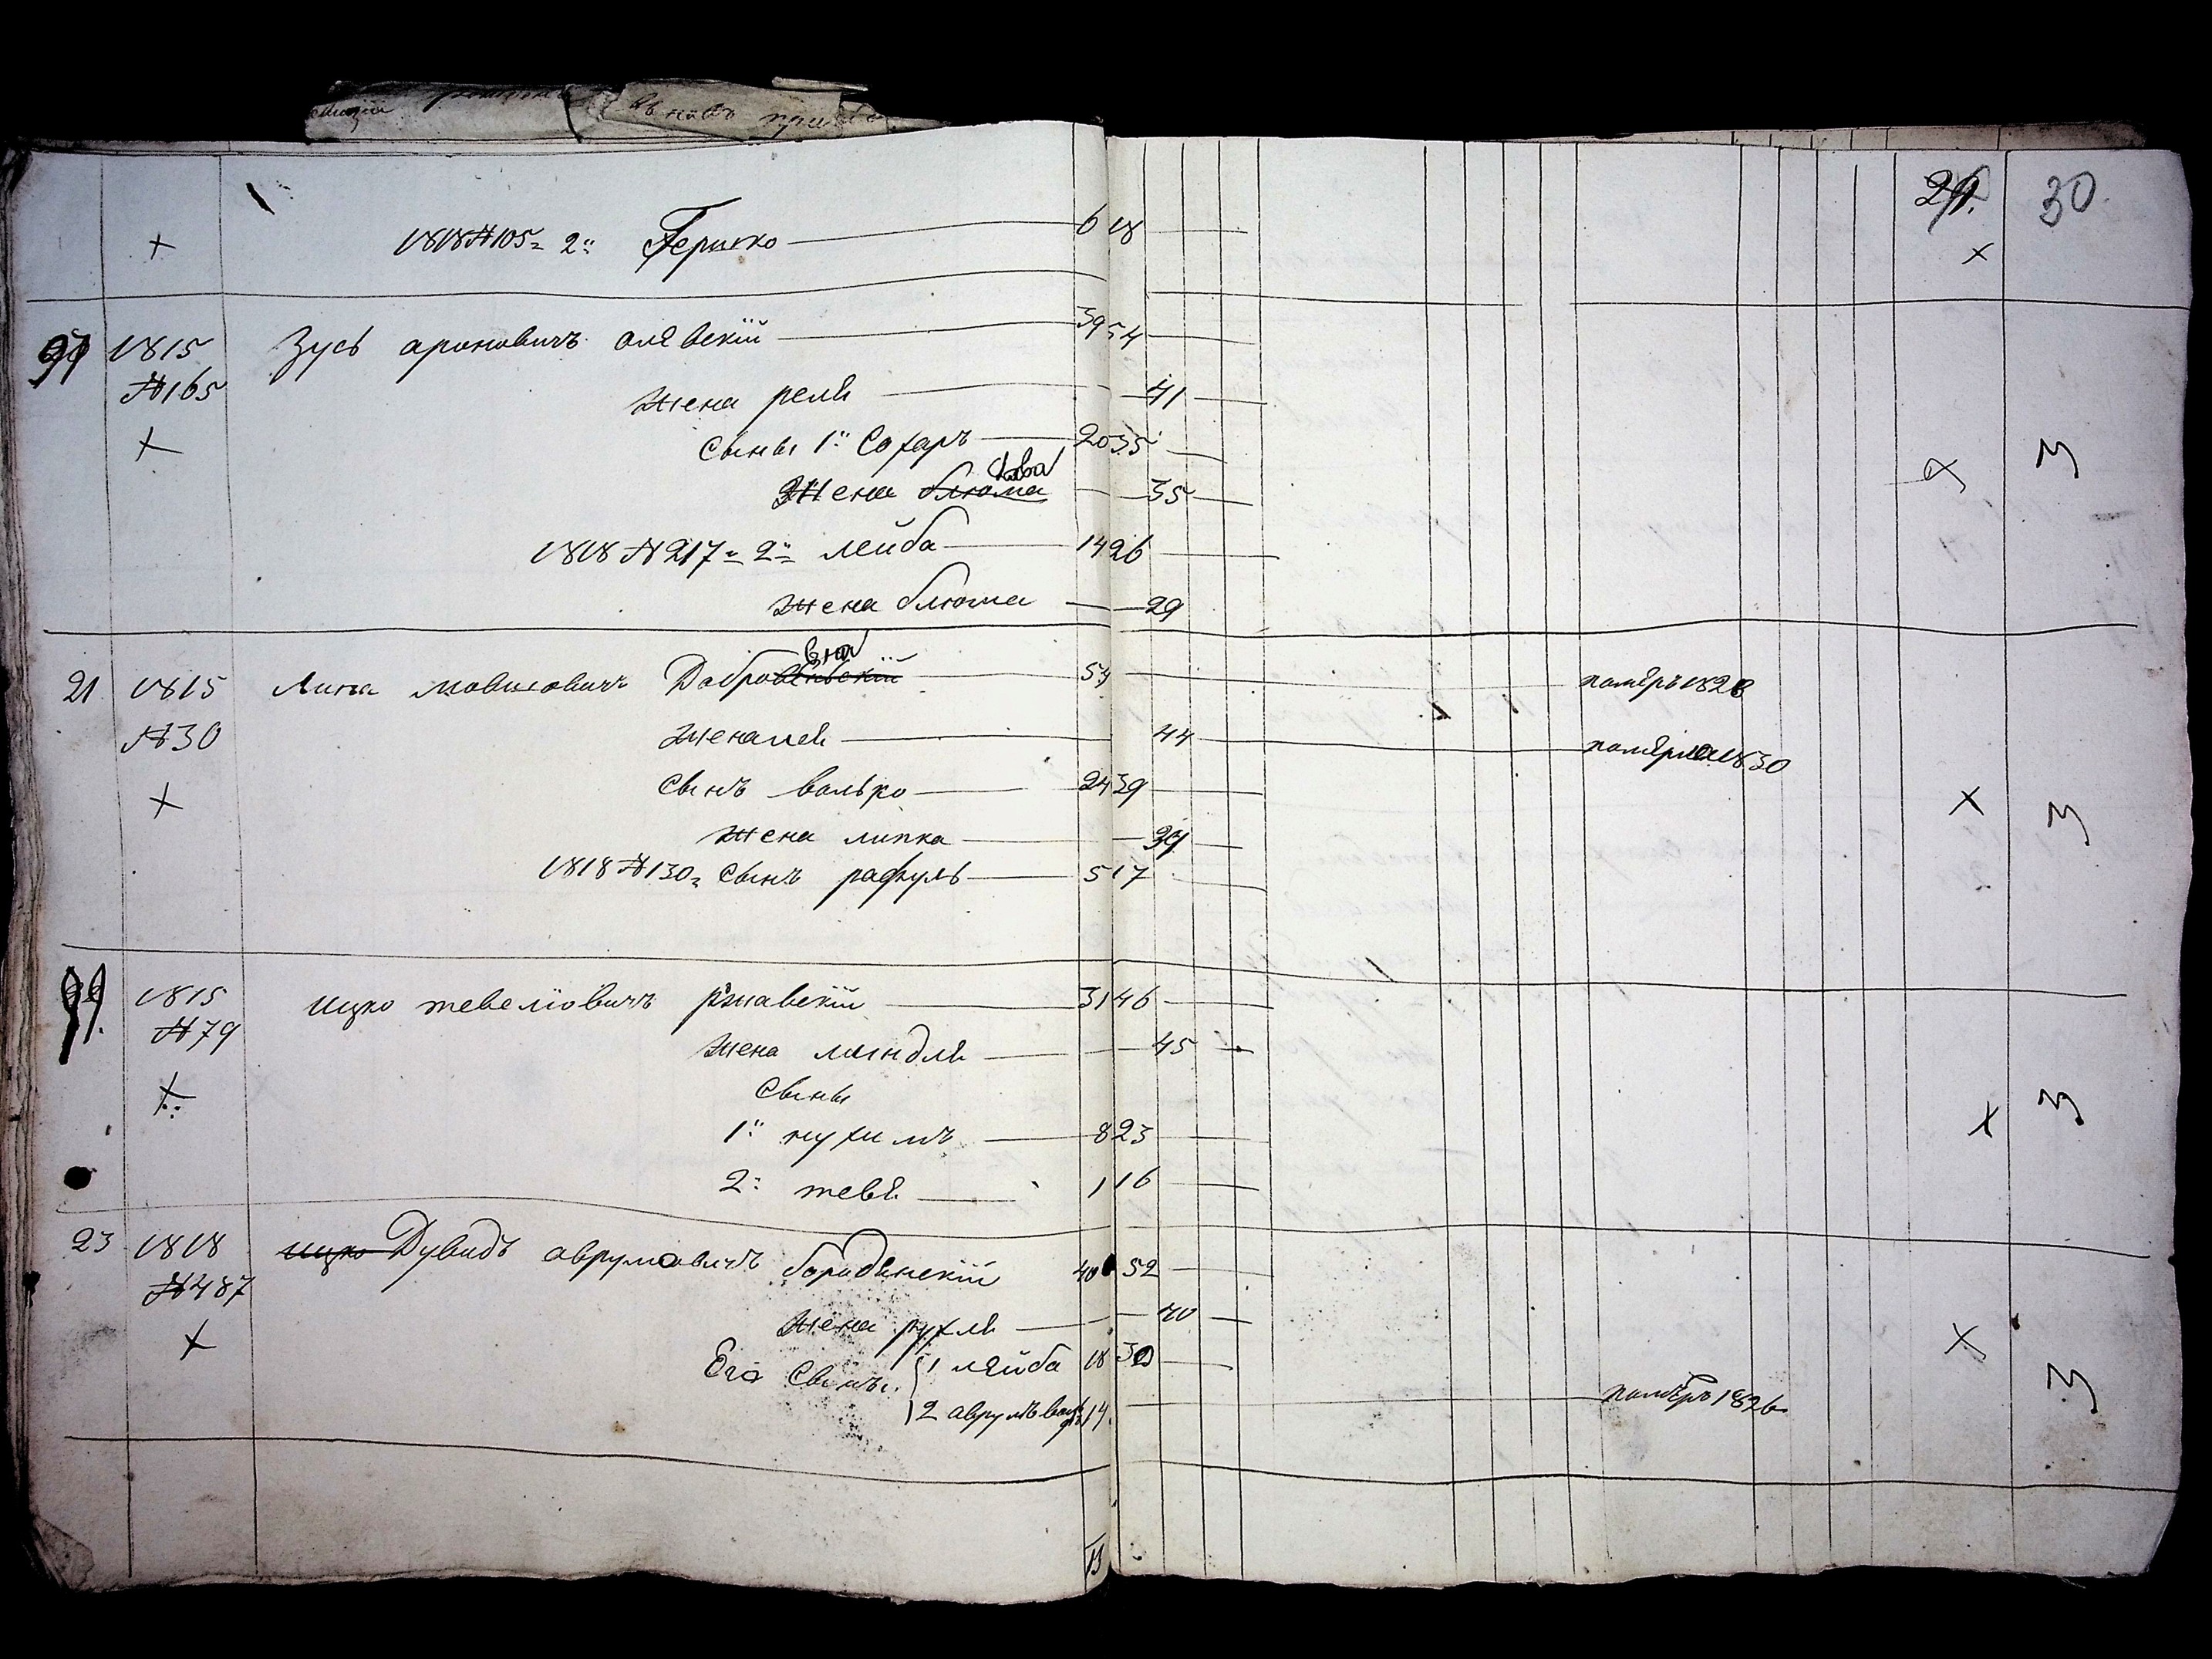 въ новъ
29. 30.
1818 №105 = 2" Гершко 6 18
1815 Зусь ароновичъ олѣвскій 39 54
№165 Жена релѣ 41
Сыны 1" Сохаръ 20 35
Хава
Жена блюма 35
1818 №217 = 2" лейба 14 26
Жена блюма 29
21 1815 Липа мовшовичъ Добровенскій 54 помѣръ 1828
№30 Жена лея 44 помѣрла 1830
Сынъ волько 24 39
Жена липка 39
1818 №130 = Сынъ рафуль 5 17
1815 ицко тевелiовичъ ржавскій 31 46
№79 Жена миндлѣ 45
Сыны
1" нухимъ 8 23
2" тевѣ 1 16
23 1818 ицко Дувидъ аврумовичъ бородянскій 40 52
№487 Жена рухлѣ 40
Его Сыны. 1 лейба 18 30
2 аврумъ 14. помѣръ 1826
13